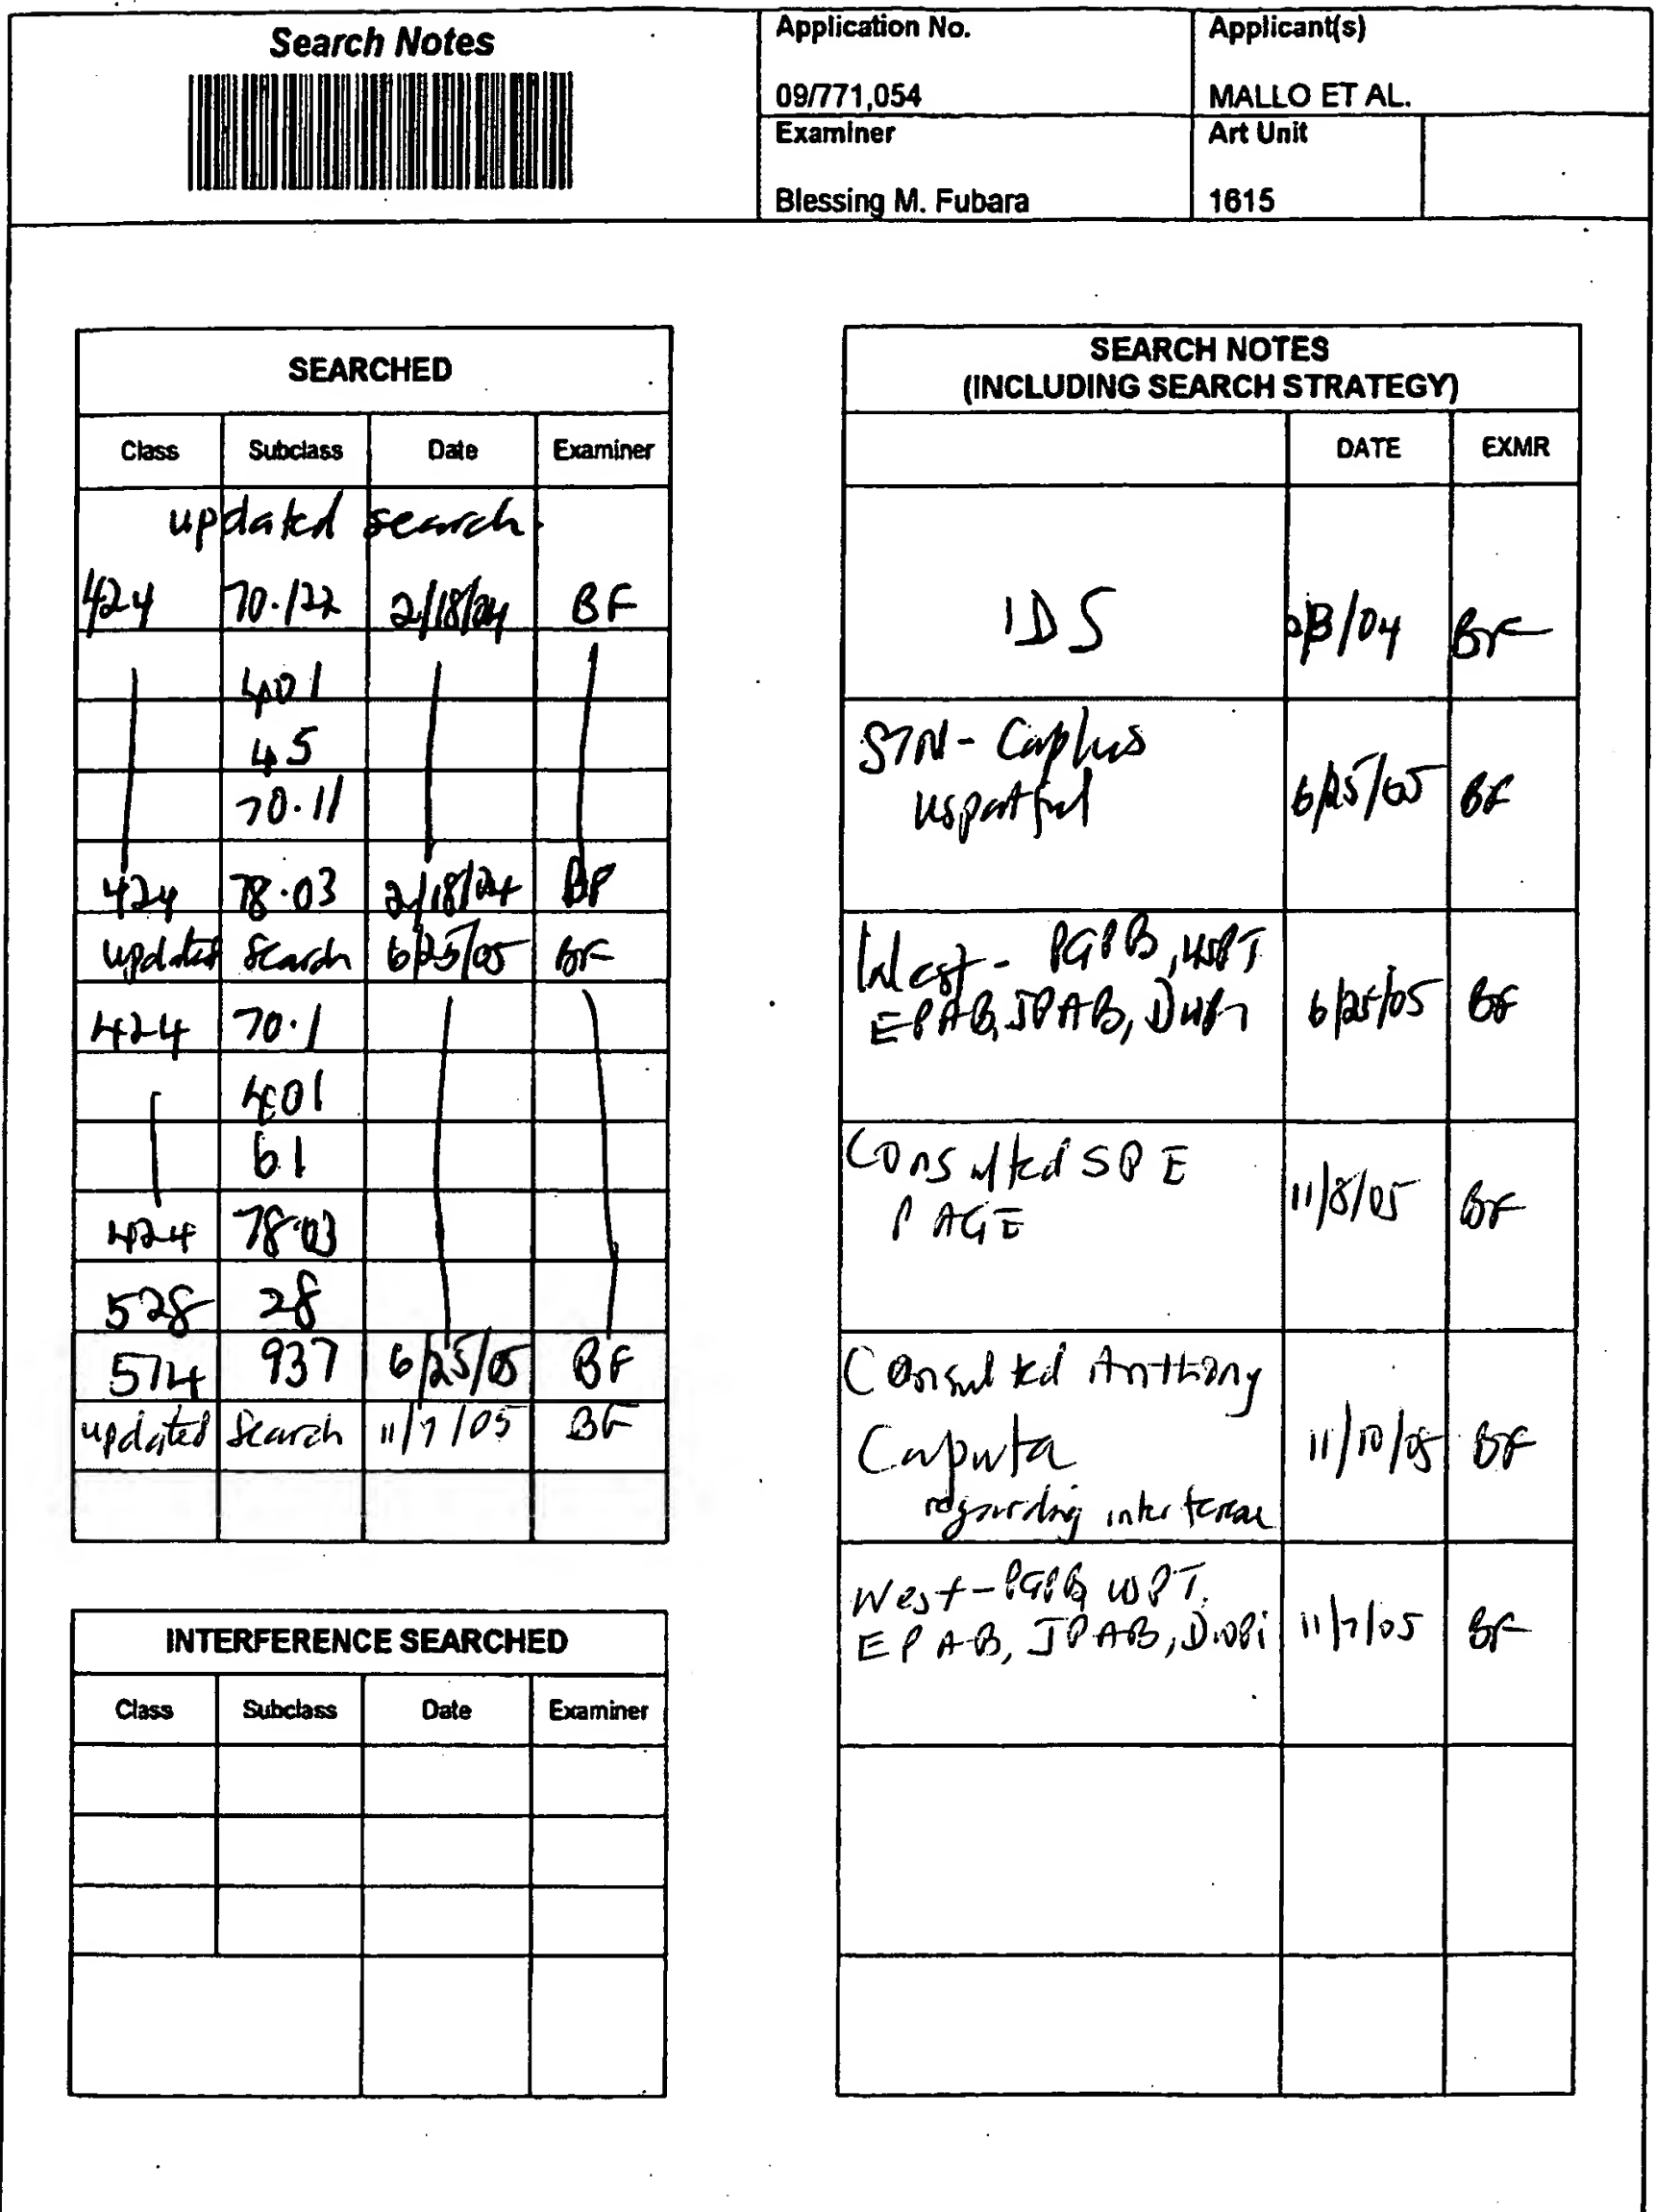 Search Notes
Application No.
09/771,054
Applicant(s)
MALLO ET AL.
Examiner
Blessing M. Fubara
Art Unit
1615
SEARCHED
Class Subclass Date Examiner
updated search
424 70.122 2/18/04 BF
401
45
70.11
424 78.03 2/18/04 BF
updated search 6/25/05 BF
424 70.1
401
61
424 78.03
528 28
514 937 6/25/05 BF
updated search 11/7/05 BF
INTERFERENCE SEARCHED
Class Subclass Date Examiner
SEARCH NOTES
(INCLUDING SEARCH STRATEGY)
DATE EXMR
IDS BF
STN - Caplus
uspatful 6/25/05 BF
West - PGPB, USPT
EPAB, JPAB, DWPI 6/25/05 BF
Consulted SPE
PAGE 11/8/05 BF
Consulted Anthony
Caputa
regarding interference 11/10/05 BF
West - PGPB USPT.
EPAB, JPAB, DWPI 11/7/05 BF